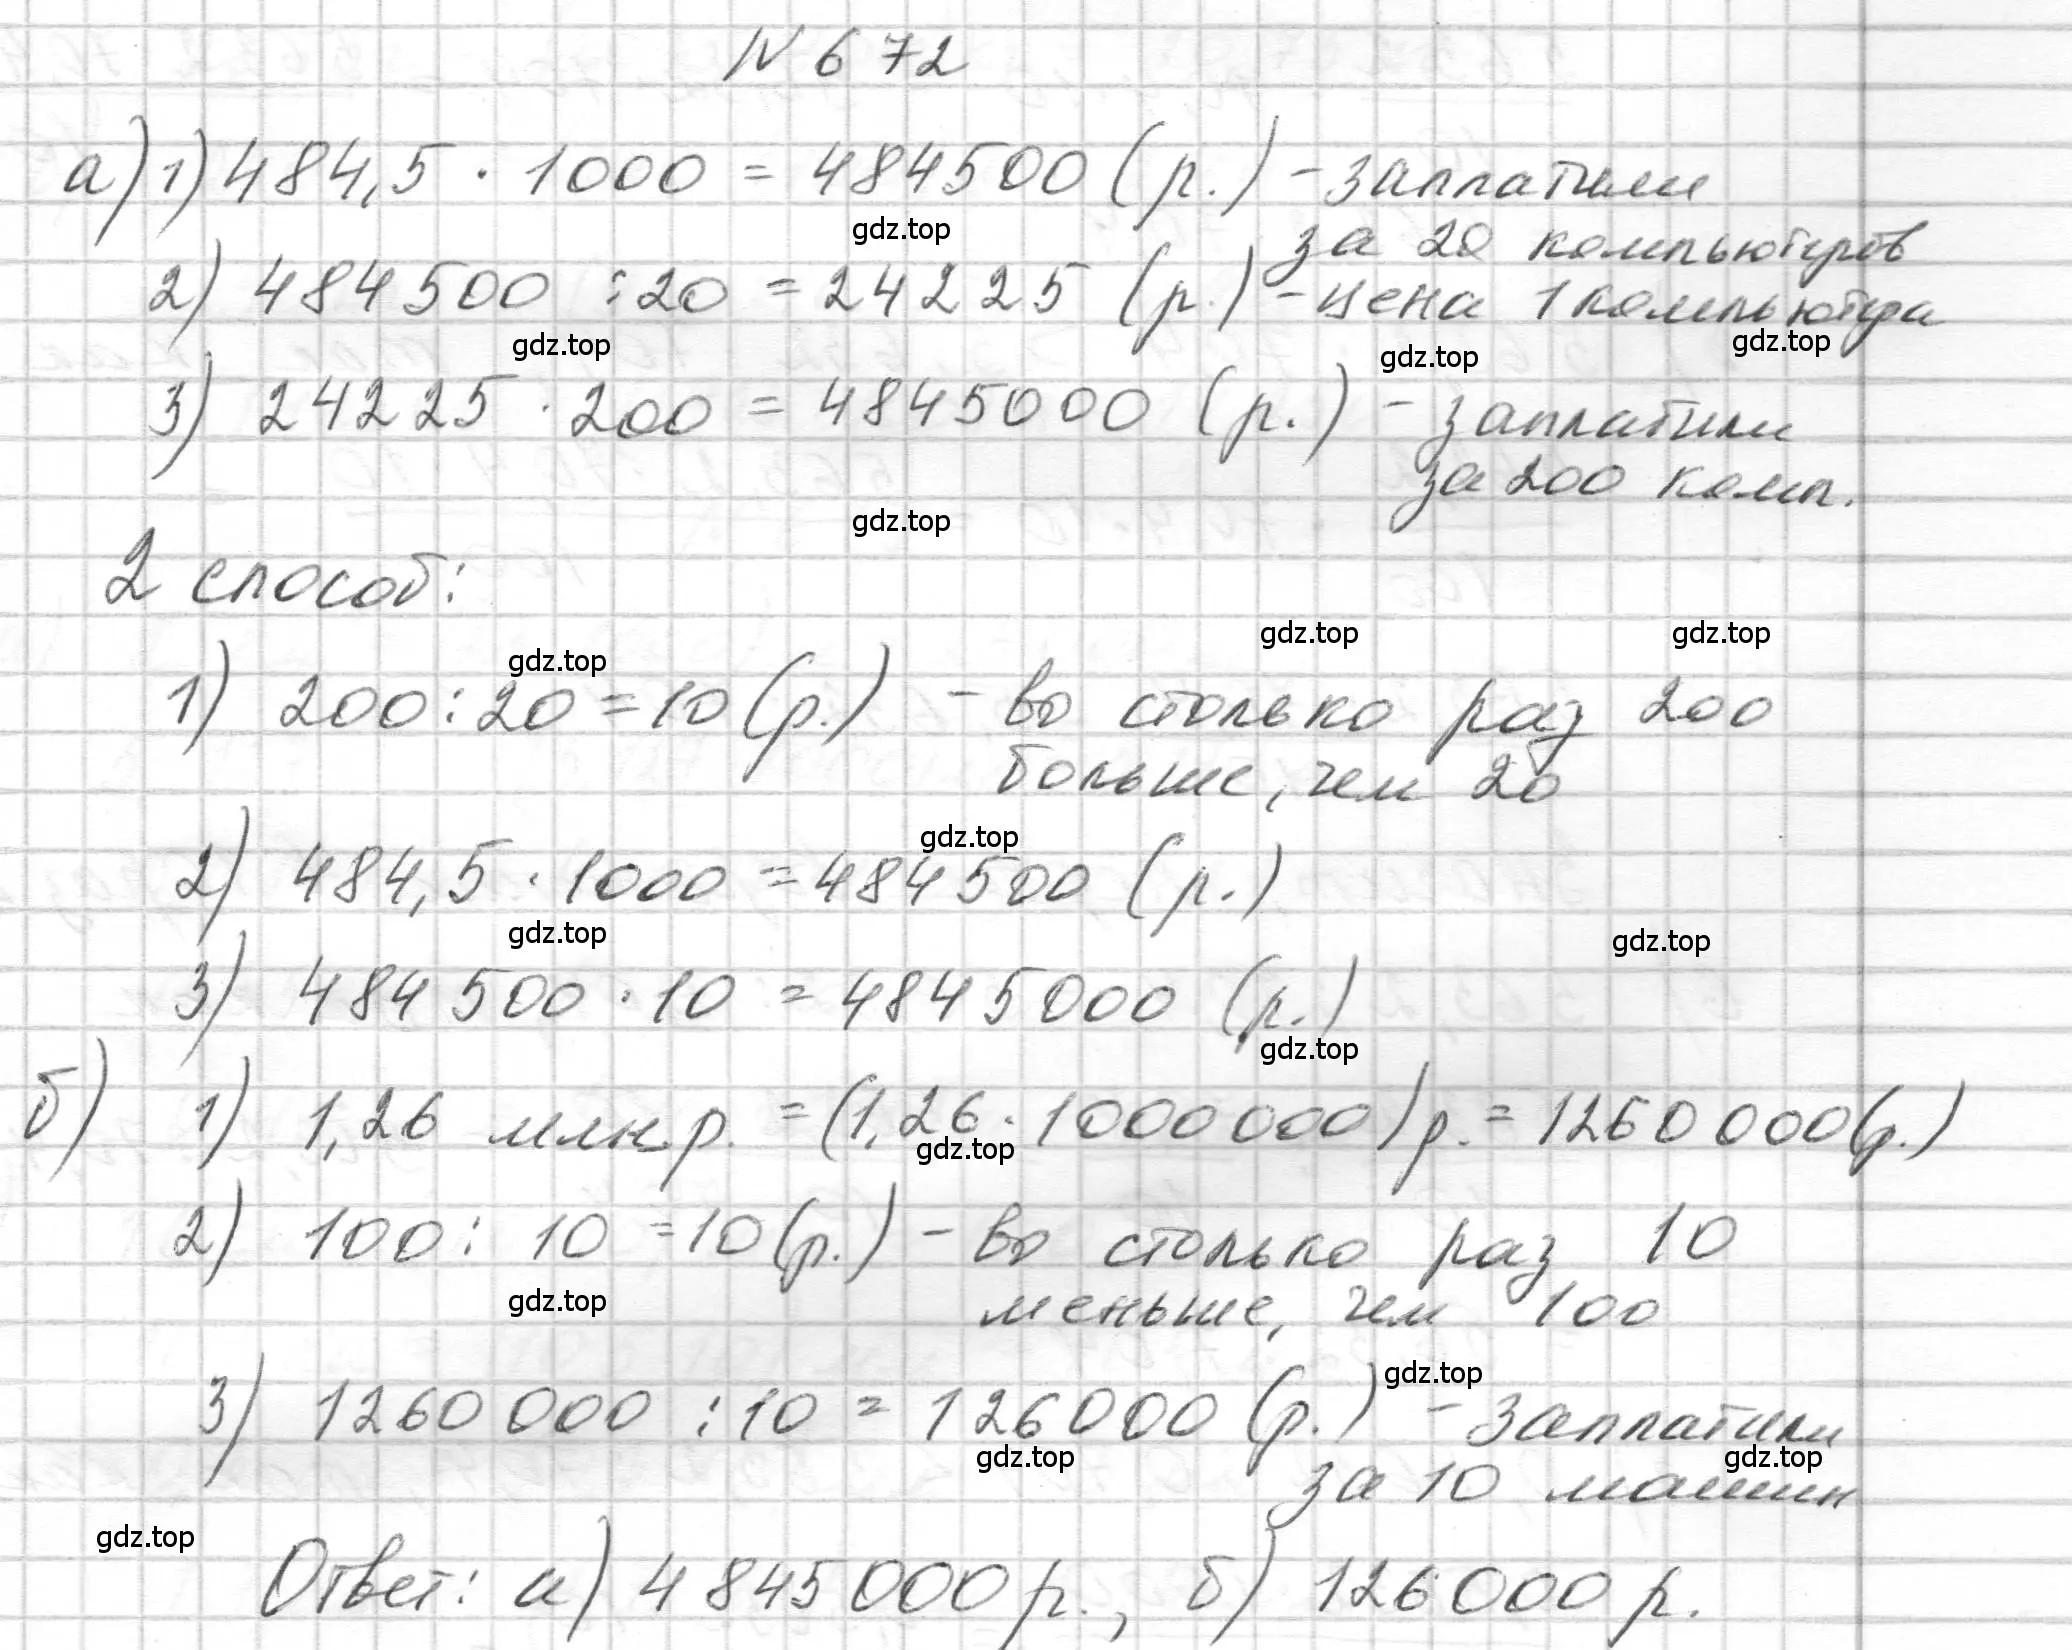 N 672
а) 1) 484,5 · 1000 = 484500 (р.) - заплатили
gdz.top
за 20 компьютеров
2) 484500 : 20 = 24225 (р.) - цена 1 компьютера
gdz.top gdz.top gdz.top
3) 24225 · 200 = 4845000 (р.) - заплатили
за 200 комп.
gdz.top
2 способ:
gdz.top gdz.top
gdz.top
1) 200 : 20 = 10 (р.) - во столько раз 200
больше, чем 20
gdz.top
2) 484,5 · 1000 = 484500 (р.)
gdz.top gdz.top
3) 484500 · 10 = 4845000 (р.)
gdz.top
б) 1) 1,26 млн.р. = (1,26 · 1000000) р. = 1260000 (р.)
gdz.top
2) 100 : 10 = 10 (р.) - во столько раз 10
gdz.top
меньше, чем 100
gdz.top
3) 1260000 : 10 = 126000 (р.) - заплатили
gdz.top gdz.top
за 10 машин
gdz.top
Ответ: а) 4845000 р., б) 126000 р.